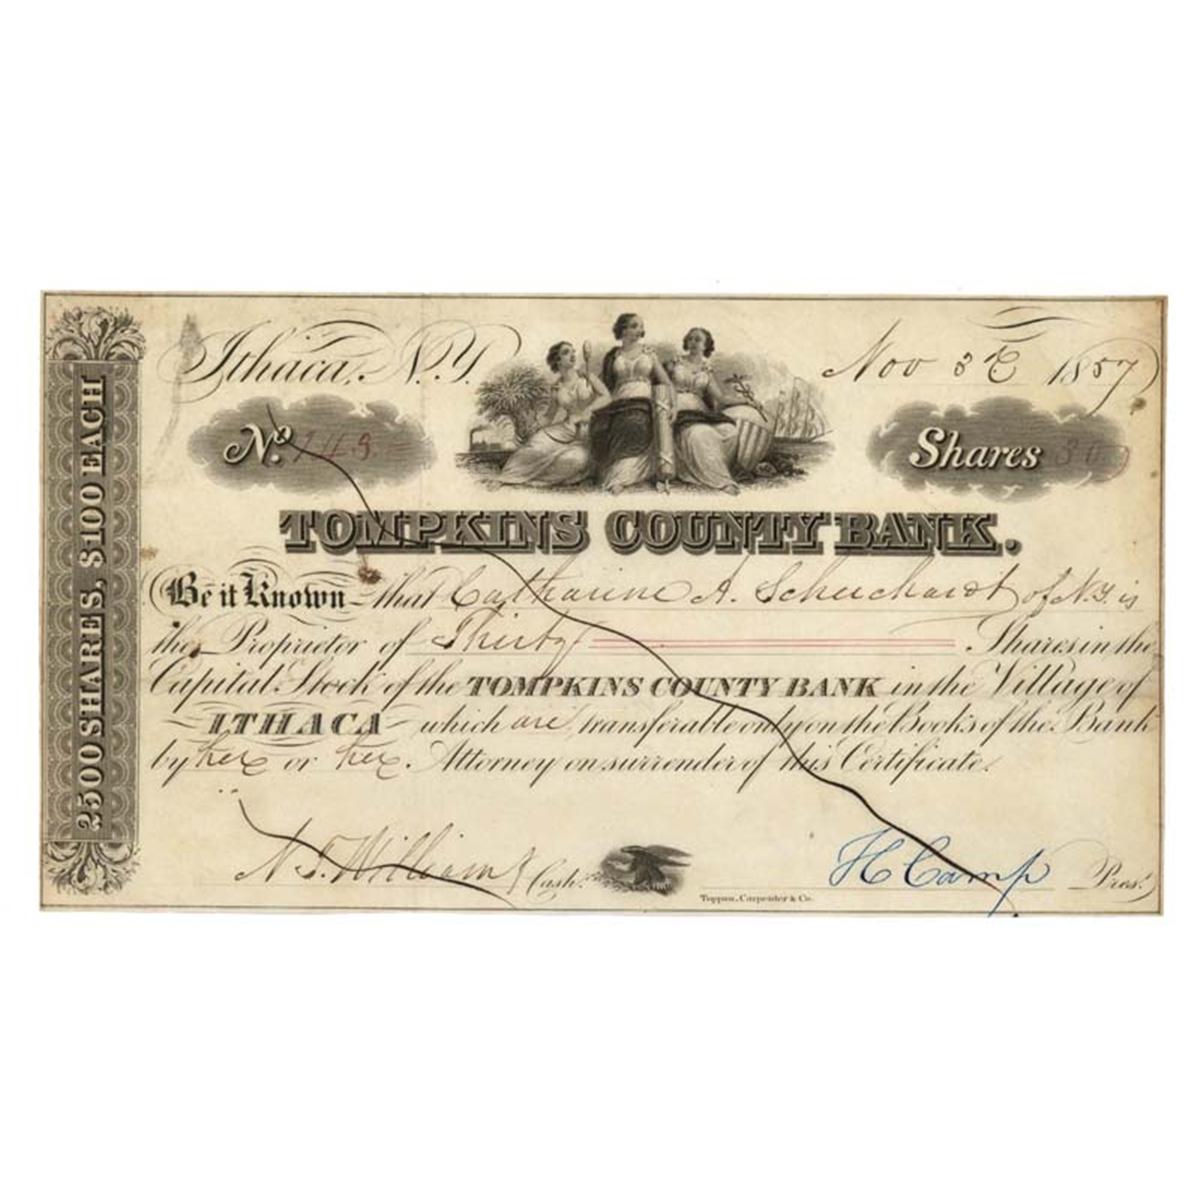 Ithaca, N.Y. Nov 3d 1857
No. 143 Shares 30
TOMPKINS COUNTY BANK.
Be it Known that Catharine A. Scheuchardt of N.Y. is
the Proprietor of Thirty Shares in the
Capital Stock of the TOMPKINS COUNTY BANK in the Village of
ITHACA which are transferable only on the Books of the Bank
by her or her Attorney on surrender of this Certificate.
N. T. Williams Cash.r H Camp Pres.t
Toppan, Carpenter & Co.
2500 SHARES, $100 EACH